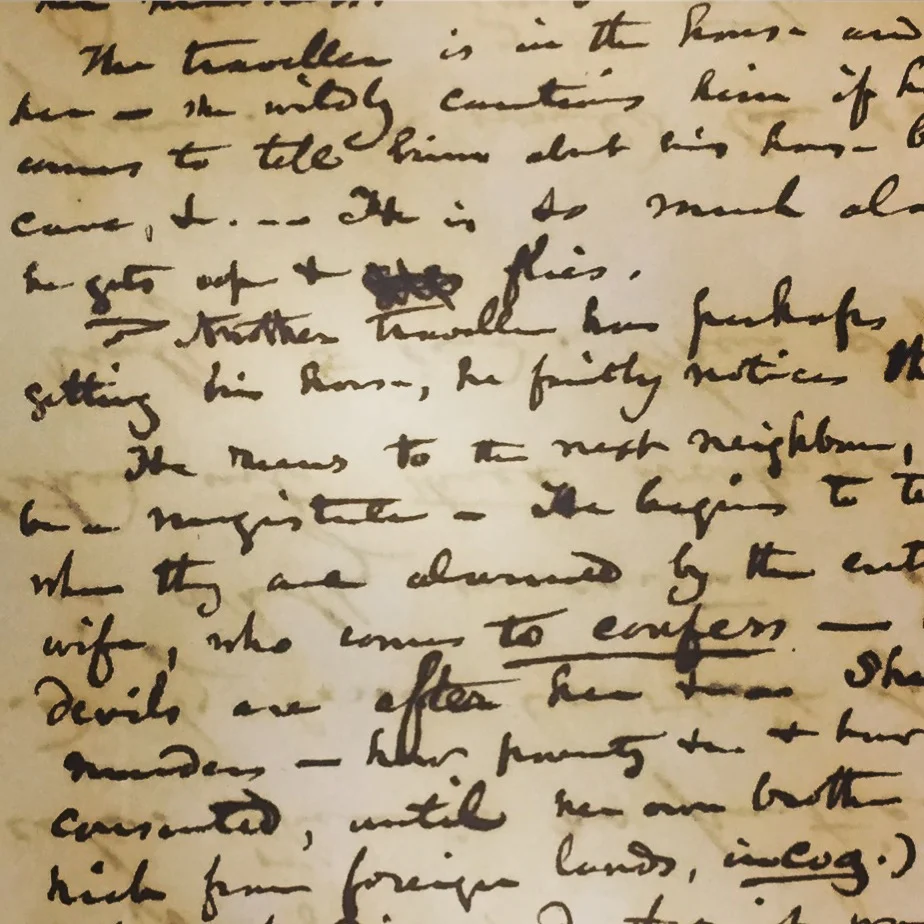 The traveller is in the house and
her — she wildly cautions him if h
comes to tell him about his hous- b
cave, &. --- He is so much al
he gets up & flies.
Another traveller has perhaps
getting his hors-, he faintly notices th
He runs to the next neighbour,
be a magistrate — He begins to te
when they are alarmed by the ent
wife, who comes to confess —
devils are after her She
murders — how poverty & how
consented, until her own brother
rich from foreign lands, incog.)